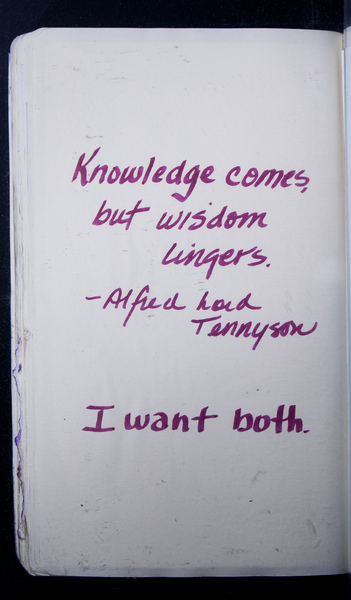 Knowledge comes,
but wisdom
lingers.
- Alfred Lord
Tennyson
I want both.